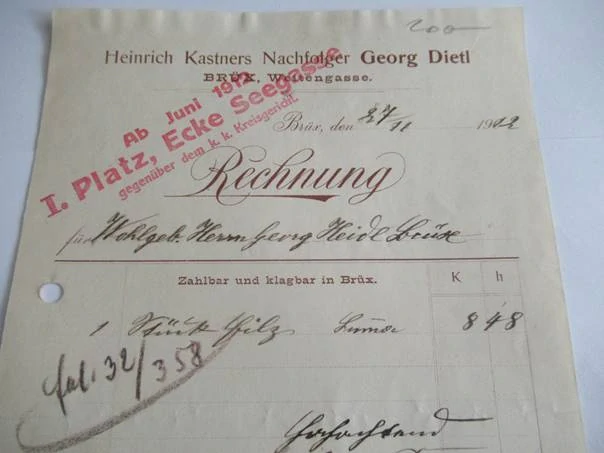 200
Heinrich Kastners Nachfolger Georg Dietl
BRÜX, Weitengasse.
Ab Juni 1912
I. Platz, Ecke Seegasse
gegenüber dem k. k. Kreisgericht.
Brüx, den 27/11 1912
Rechnung
für Wohlgeb. Herrn Georg Heidl Brüx
Zahlbar und klagbar in Brüx.
K h
1 Stück Filz 8 48
fol. 32/358
Hochachtend